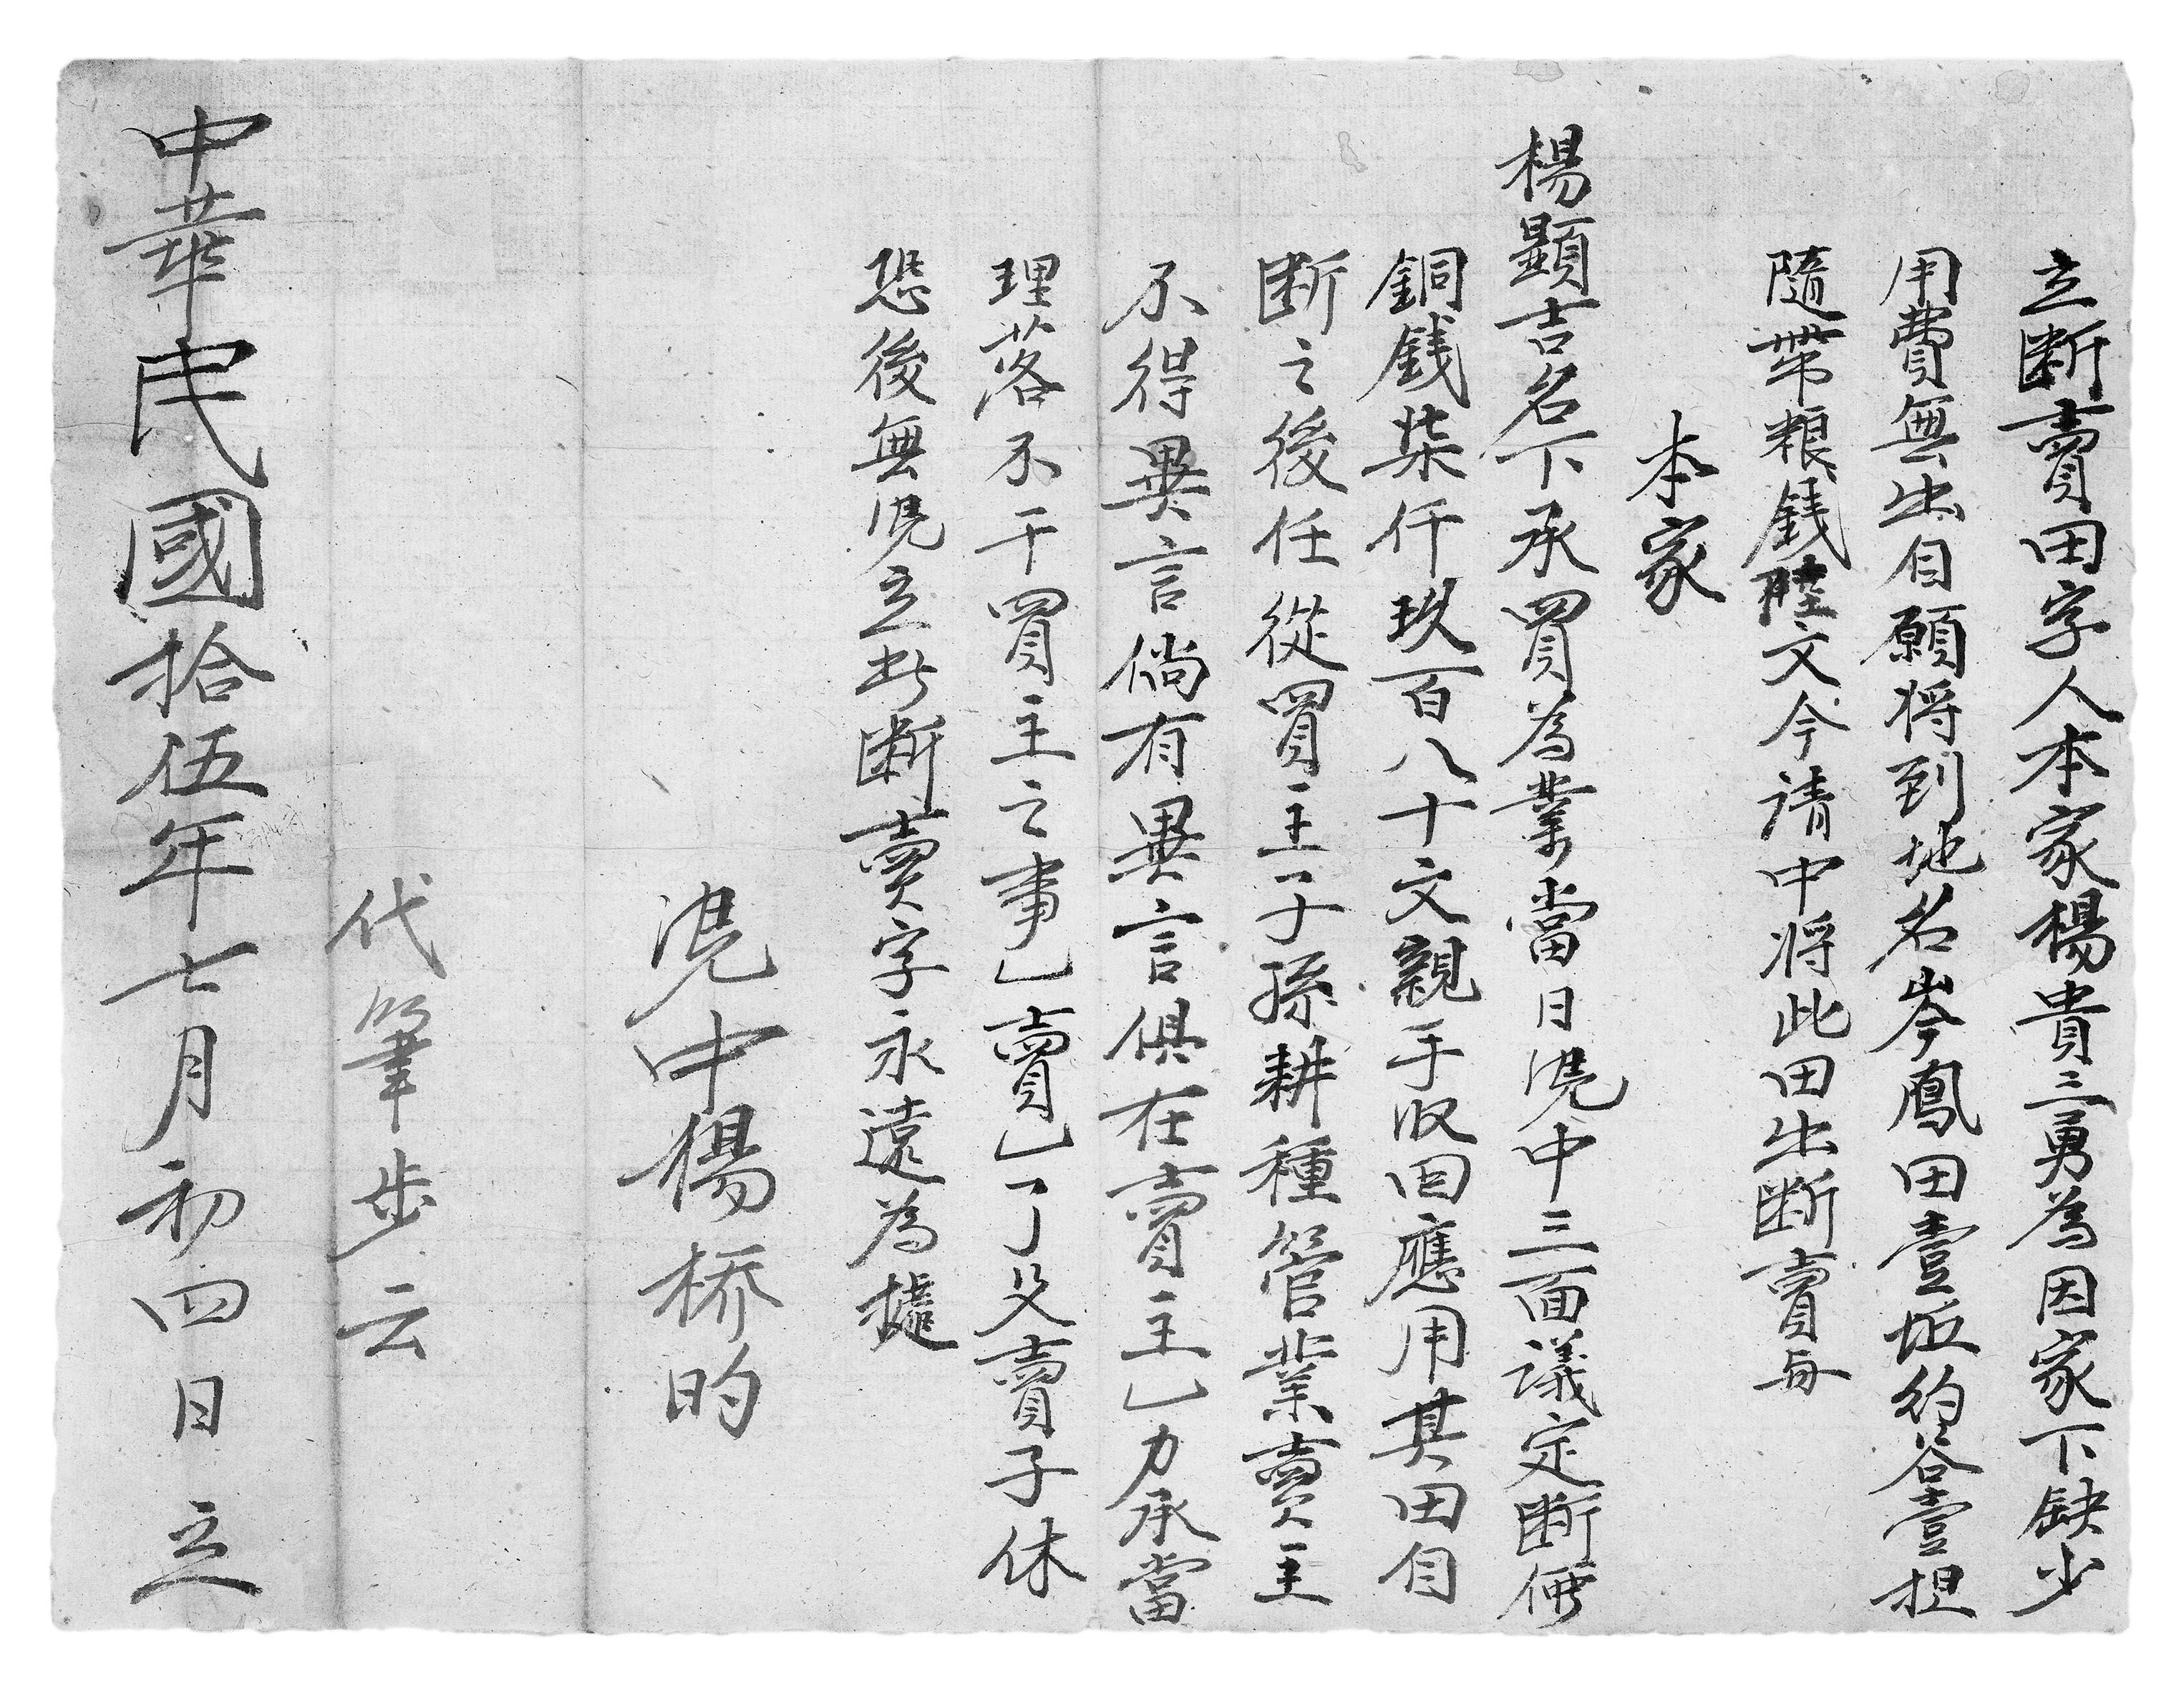 立断賣田字人本家楊貴三勇為因家下缺少
用費無出自願将到地名岑鳳田壹坵約谷壹担
隨帶粮錢陸文今請中将此田出断賣與
本家
楊顯吉名下承買為業當日凴中三面議定断價
銅錢柒仟玖百八十文親手收回應用其田自
断之後任從買主子孫耕種管業賣主
不得異言倘有異言俱在賣主乚力承當
理落不干買主之事乚賣乚了父賣子休
恐後無凴立此断賣字永遠為㨿
凴中楊桥昀
代筆步云
中華民國拾伍年七月初四日立